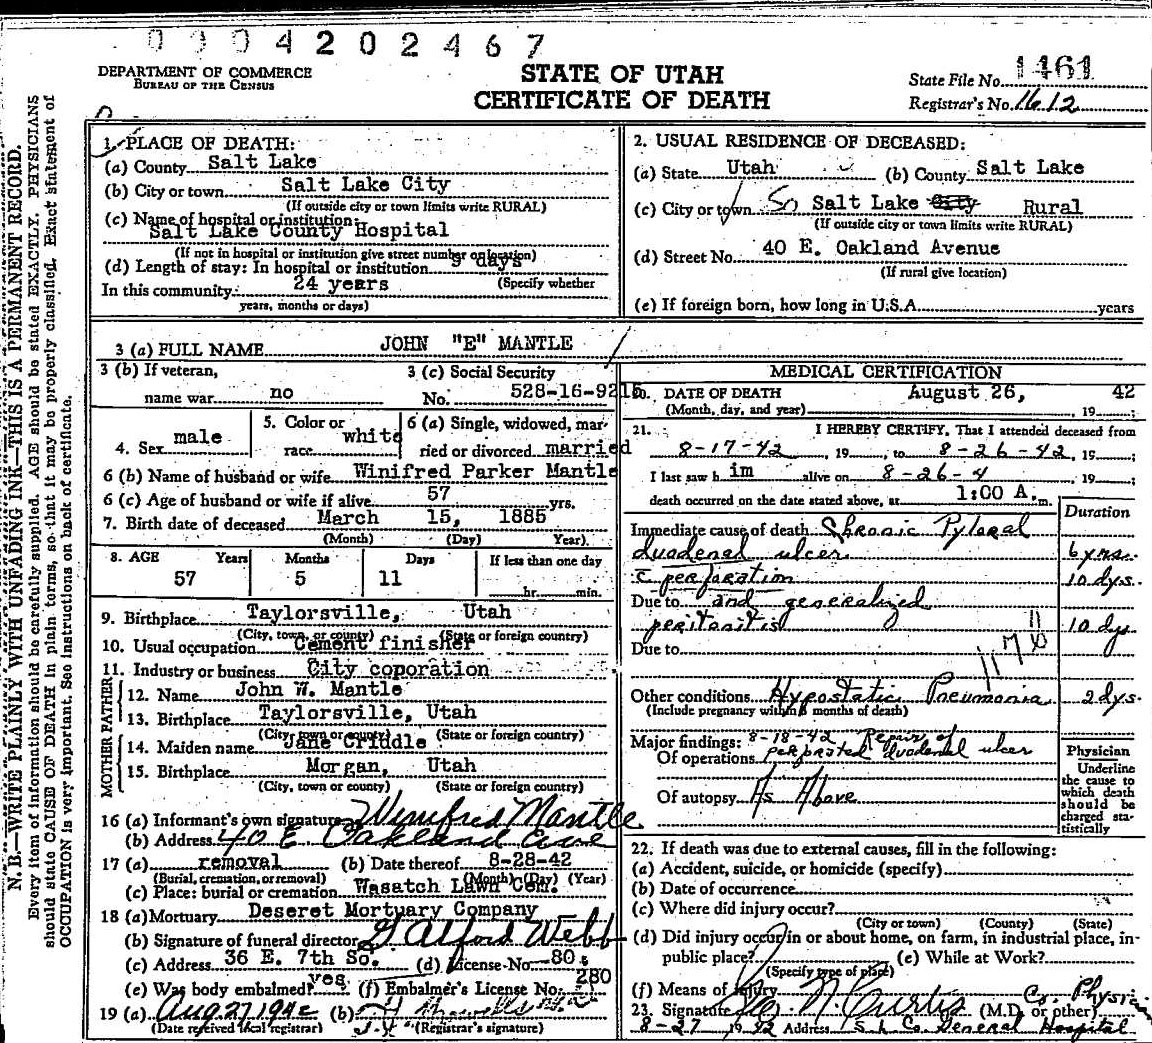 0004202467
DEPARTMENT OF COMMERCE
BUREAU OF THE CENSUS
STATE OF UTAH
CERTIFICATE OF DEATH
State File No. 1461
Registrar's No. 1612
N. B.—WRITE PLAINLY WITH UNFADING INK—THIS IS A PERMANENT RECORD.
Every item of information should be carefully supplied. AGE should be stated EXACTLY. PHYSICIANS
should state CAUSE OF DEATH in plain terms, so that it may be properly classified. Exact statement of
OCCUPATION is very important. See instructions on back of certificate.
1. PLACE OF DEATH:
(a) County Salt Lake
(b) City or town Salt Lake City
(If outside city or town limits write RURAL)
(c) Name of hospital or institution:
Salt Lake County Hospital
(If not in hospital or institution give street number or location)
(d) Length of stay: In hospital or institution 9 days
(Specify whether
In this community: 24 years
years, months or days)
2. USUAL RESIDENCE OF DECEASED:
(a) State Utah (b) County Salt Lake
(c) City or town So Salt Lake City Rural
(If outside city or town limits write RURAL)
(d) Street No. 40 E. Oakland Avenue
(If rural give location)
(e) If foreign born, how long in U.S.A. years
3 (a) FULL NAME JOHN "E" MANTLE
3 (b) If veteran,
name war no
3 (c) Social Security
No. 528-16-9215
4. Sex male
5. Color or
race white
6 (a) Single, widowed, mar-
ried or divorced married
6 (b) Name of husband or wife Winifred Parker Mantle
6 (c) Age of husband or wife if alive 57 yrs.
7. Birth date of deceased March 15, 1885
(Month) (Day) Year).
8. AGE Years Months Days If less than one day
57 5 11 hr. min.
9. Birthplace Taylorsville, Utah
(City, town, or county) (State or foreign country)
10. Usual occupation Cement finisher
11. Industry or business City coporation
FATHER
12. Name John W. Mantle
13. Birthplace Taylorsville, Utah
(City, town or county) (State or foreign country)
MOTHER
14. Maiden name Jane Criddle
15. Birthplace Morgan, Utah
(City, town or county) (State or foreign country)
16 (a) Informant's own signature Winifred Mantle
(b) Address 40 E Oakland Ave
17 (a) removal (b) Date thereof 8-28-42
(Burial, cremation, or removal) (Month) (Day) (Year)
(c) Place: burial or cremation Wasatch Lawn Cem.
18 (a) Mortuary Deseret Mortuary Company
(b) Signature of funeral director Galford Webb
(c) Address 36 E. 7th So. (d) License No. 80
(e) Was body embalmed? yes (f) Embalmer's License No. 280
19 (a) Aug 27 1942 (b)
(Date received local registrar) (Registrar's signature)
MEDICAL CERTIFICATION
20. DATE OF DEATH August 26, 42
(Month, day, and year) , 19 ;
21. I HEREBY CERTIFY, That I attended deceased from
8-17-42, 19 , to 8-26-42, 19 ;
I last saw him alive on 8-26-4 , 19 ;
death occurred on the date stated above, at 1:00 A. m.
Duration
Immediate cause of death Chronic Pyloral
duodenal ulcer 6 yrs.
c perforation 10 dys.
Due to and generalized
peritonitis 10 dys
Due to
117
Other conditions Hypostatic Pneumonia 2 dys.
(Include pregnancy within 3 months of death)
Major findings: 8-18-42 Repair of
Of operations perforated duodenal ulcer
Of autopsy As Above
Physician
Underline
the cause to
which death
should be
charged sta-
tistically
22. If death was due to external causes, fill in the following:
(a) Accident, suicide, or homicide (specify)
(b) Date of occurrence
(c) Where did injury occur?
(City or town) (County) (State)
(d) Did injury occur in or about home, on farm, in industrial place, in
public place? (e) While at Work?
(Specify type of place)
(f) Means of injury
23. Signature N Curtis Co. Physician (M.D. or other)
8-27 1942 Address S. L. Co. General Hospital